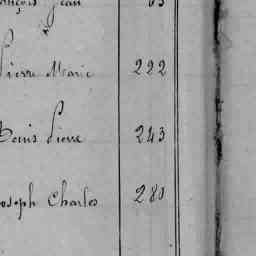 Jean 63
Pierre Marie 222
Louis Pierre 243
Joseph Charles 280